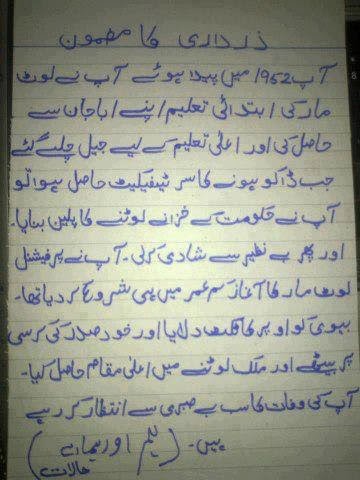 زرداری کا مضمون
آپ 1952 میں پیدا ہوئے آپ نے لوٹ
مار کی ابتدائی تعلیم اپنے اباجان سے
حاصل کی اور اعلیٰ تعلیم کے لیے جیل چلے گئے
جب ڈاکو ہونے کا سرٹیفیکیٹ حاصل ہوا تو
آپ نے حکومت کے خزانے لوٹنے کا پلین بنایا۔
اور پھر بے نظیر سے شادی کرلی۔ آپ نے پرفیشنل
لوٹ مار کا آغاز کم عمر میں ہی شروع کر دیا تھا۔
بیوی کو اوپر کا ٹکٹ دلایا اور خود صدر کی کرسی
پر بیٹھے اور ملک لوٹنے میں اعلیٰ مقام حاصل کیا۔
آپ کی وفات کا سب بے صبری سے انتظار کر رہے
ہیں۔ (ہم اور ہمارے
حالات)